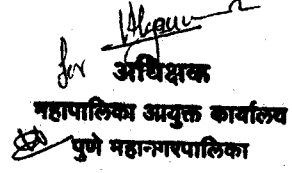 for
अधिक्षक
महापालिका आयुक्त कार्यालय
पुणे महानगरपालिका